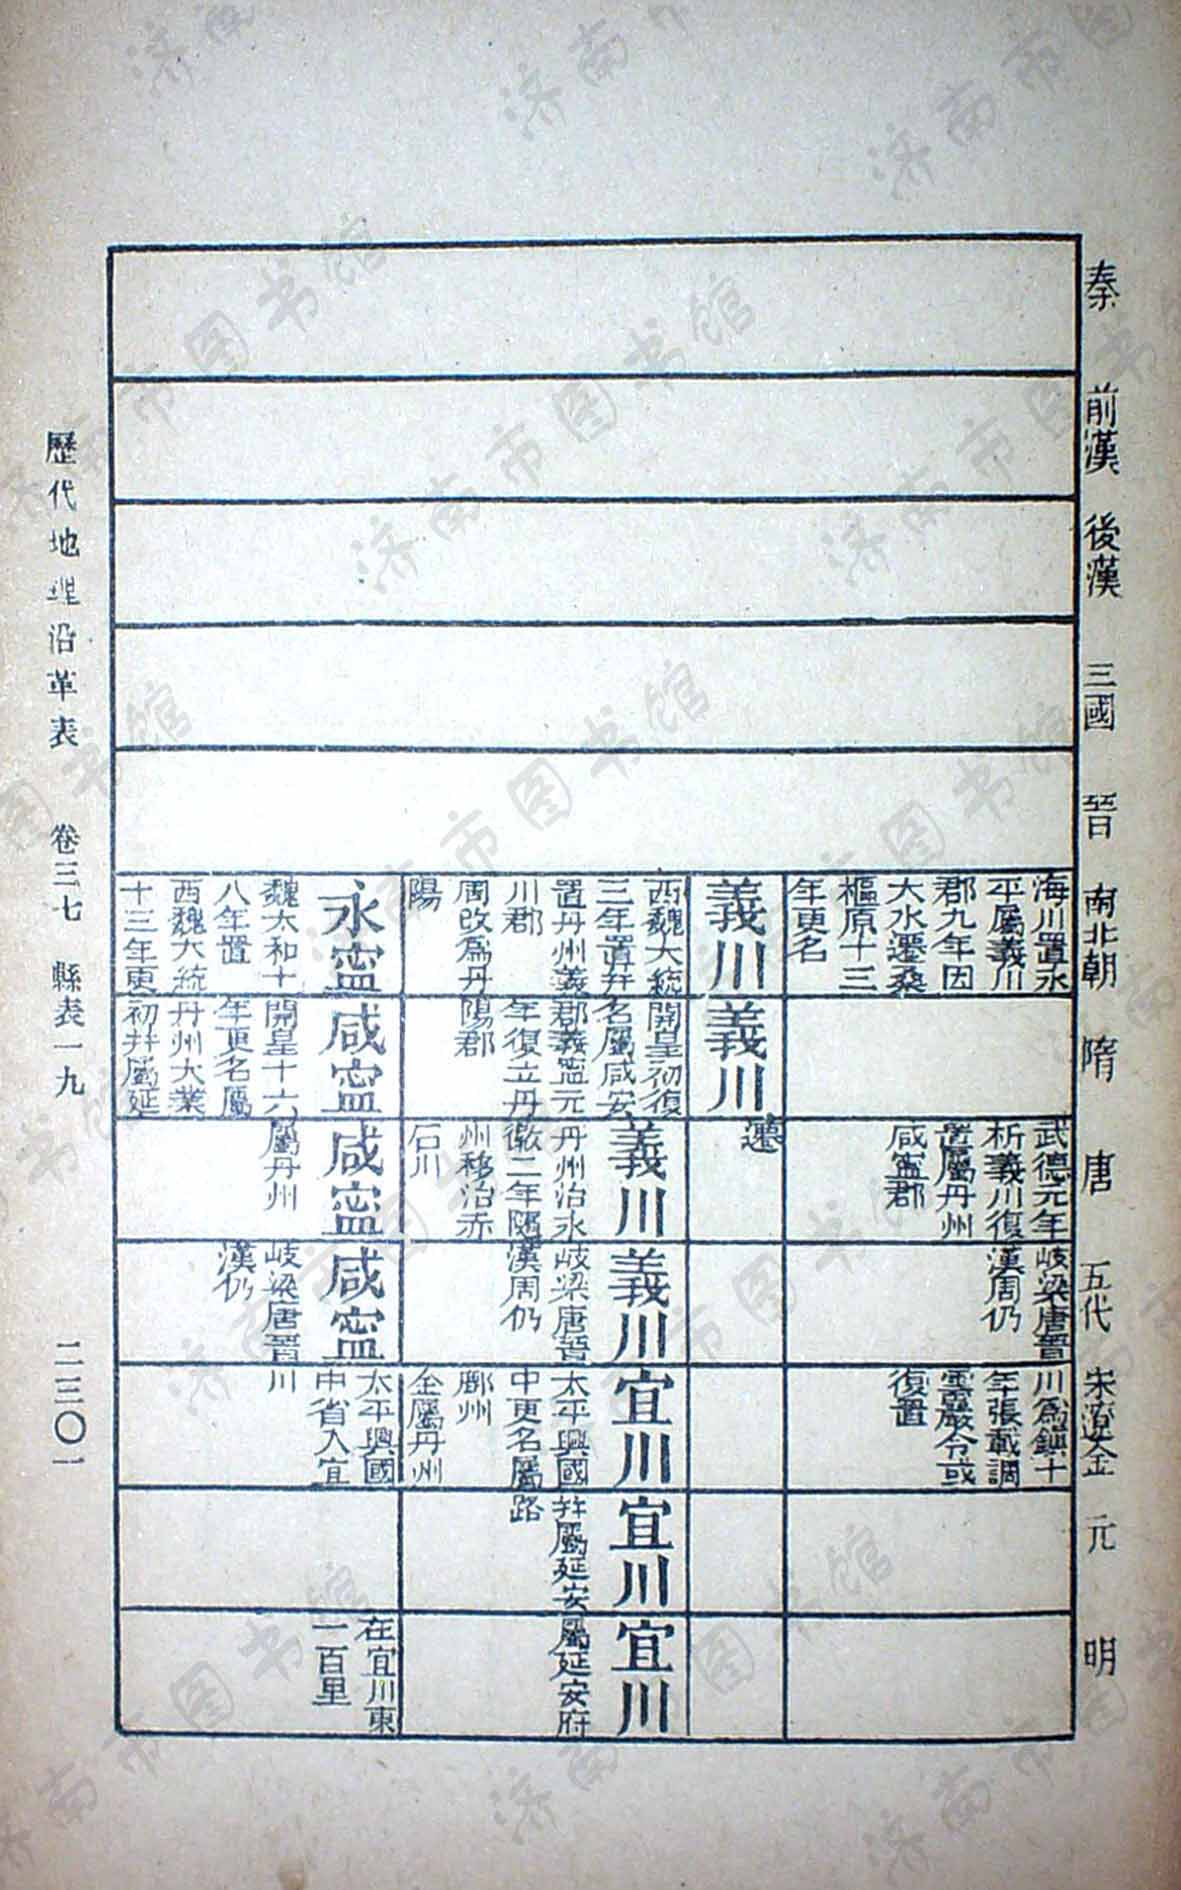 秦
前漢
後漢
三國
晉
南北朝
隋
唐
五代
宋遼金
元
明
海川置永
平屬義川
郡九年因
大水遷桑
樞原十三
年更名
義川
西魏大統
三年置幷
置丹州義
川郡
周改爲丹
陽
永寧
魏太和十
八年置
西魏大統
十三年更
義川
開皇初復
名屬咸安
郡義寧元
年復立丹
陽郡
咸寧
開皇十六
年更名屬
丹州大業
初幷屬延
武德元年
析義川復
置屬丹州
咸寧郡
遷
義川
丹州治永
徽二年隨
州移治赤
石川
咸寧
屬丹州
岐梁唐晉
漢周仍
義川
岐梁唐晉
漢周仍
咸寧
岐梁唐晉
漢仍
川爲鎭十
年張載調
雲巖令或
復置
宜川
太平興國
中更名屬
鄜州
金屬丹州
太平興國
中省入宜
川
宜川
幷屬延安
路
宜川
屬延安府
在宜川東
一百里
歷代地理沿革表 卷三七 縣表一九 二三〇一
济南市图书馆